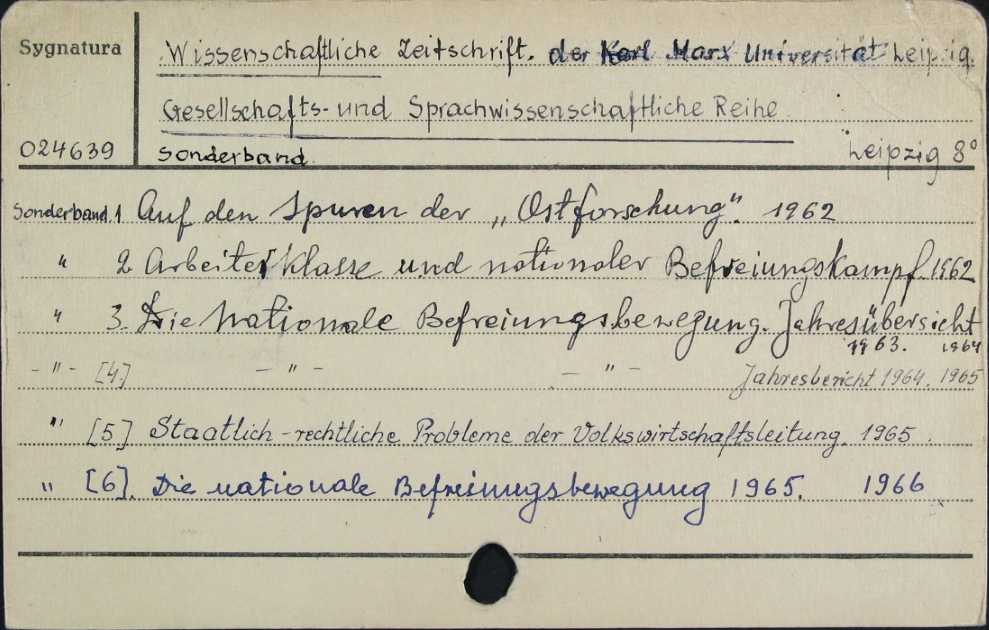 Sygnatura
Wissenschaftliche Zeitschrift. der Karl Marx Universität Leipzig.
Gesellschafts- und Sprachwissenschaftliche Reihe
024639 Sonderband. Leipzig 8°
Sonderband 1 Auf den Spuren der „Ostforschung". 1962
" 2 Arbeiterklasse und nationaler Befreiungskampf. 1962
" 3. Die nationale Befreiungsbewegung. Jahresübersicht
1963. 1964
- " - [4] - " - - " - Jahresbericht 1964. 1965
" [5] Staatlich-rechtliche Probleme der Volkswirtschaftsleitung. 1965.
" [6]. Die nationale Befreiungsbewegung 1965. 1966